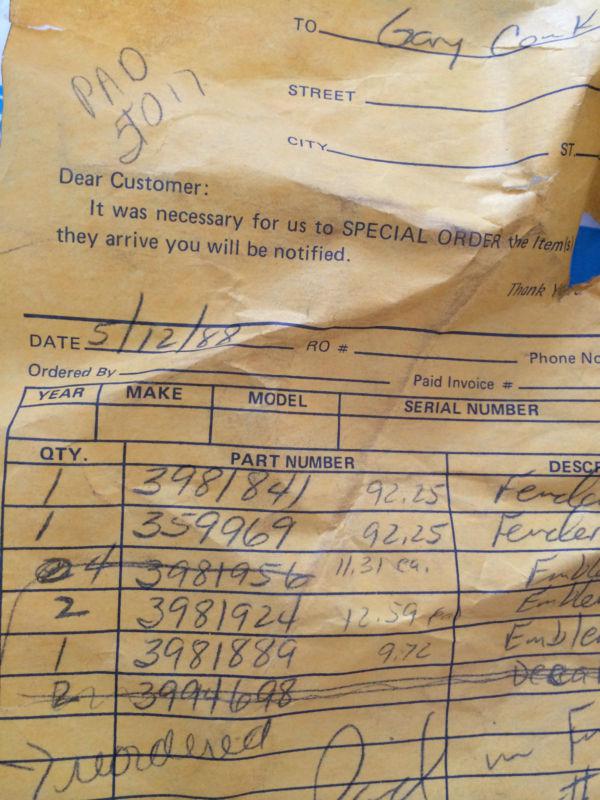 TO Gary
PAD
STREET
CITY ST.
Dear Customer:
It was necessary for us to SPECIAL ORDER the Item(s)
they arrive you will be notified.
Thank
DATE 5/12/88 RO # Phone No
Ordered By Paid Invoice #
YEAR MAKE MODEL SERIAL NUMBER
QTY. PART NUMBER DESCR
1 3981841 92.25 Fender
1 359969 92.25 Fender
4 3981956 11.31 ea. Emble
2 3981924 12.59 Emble
1 3981889 9.72 Emble
2 3994698 Decal
reordered